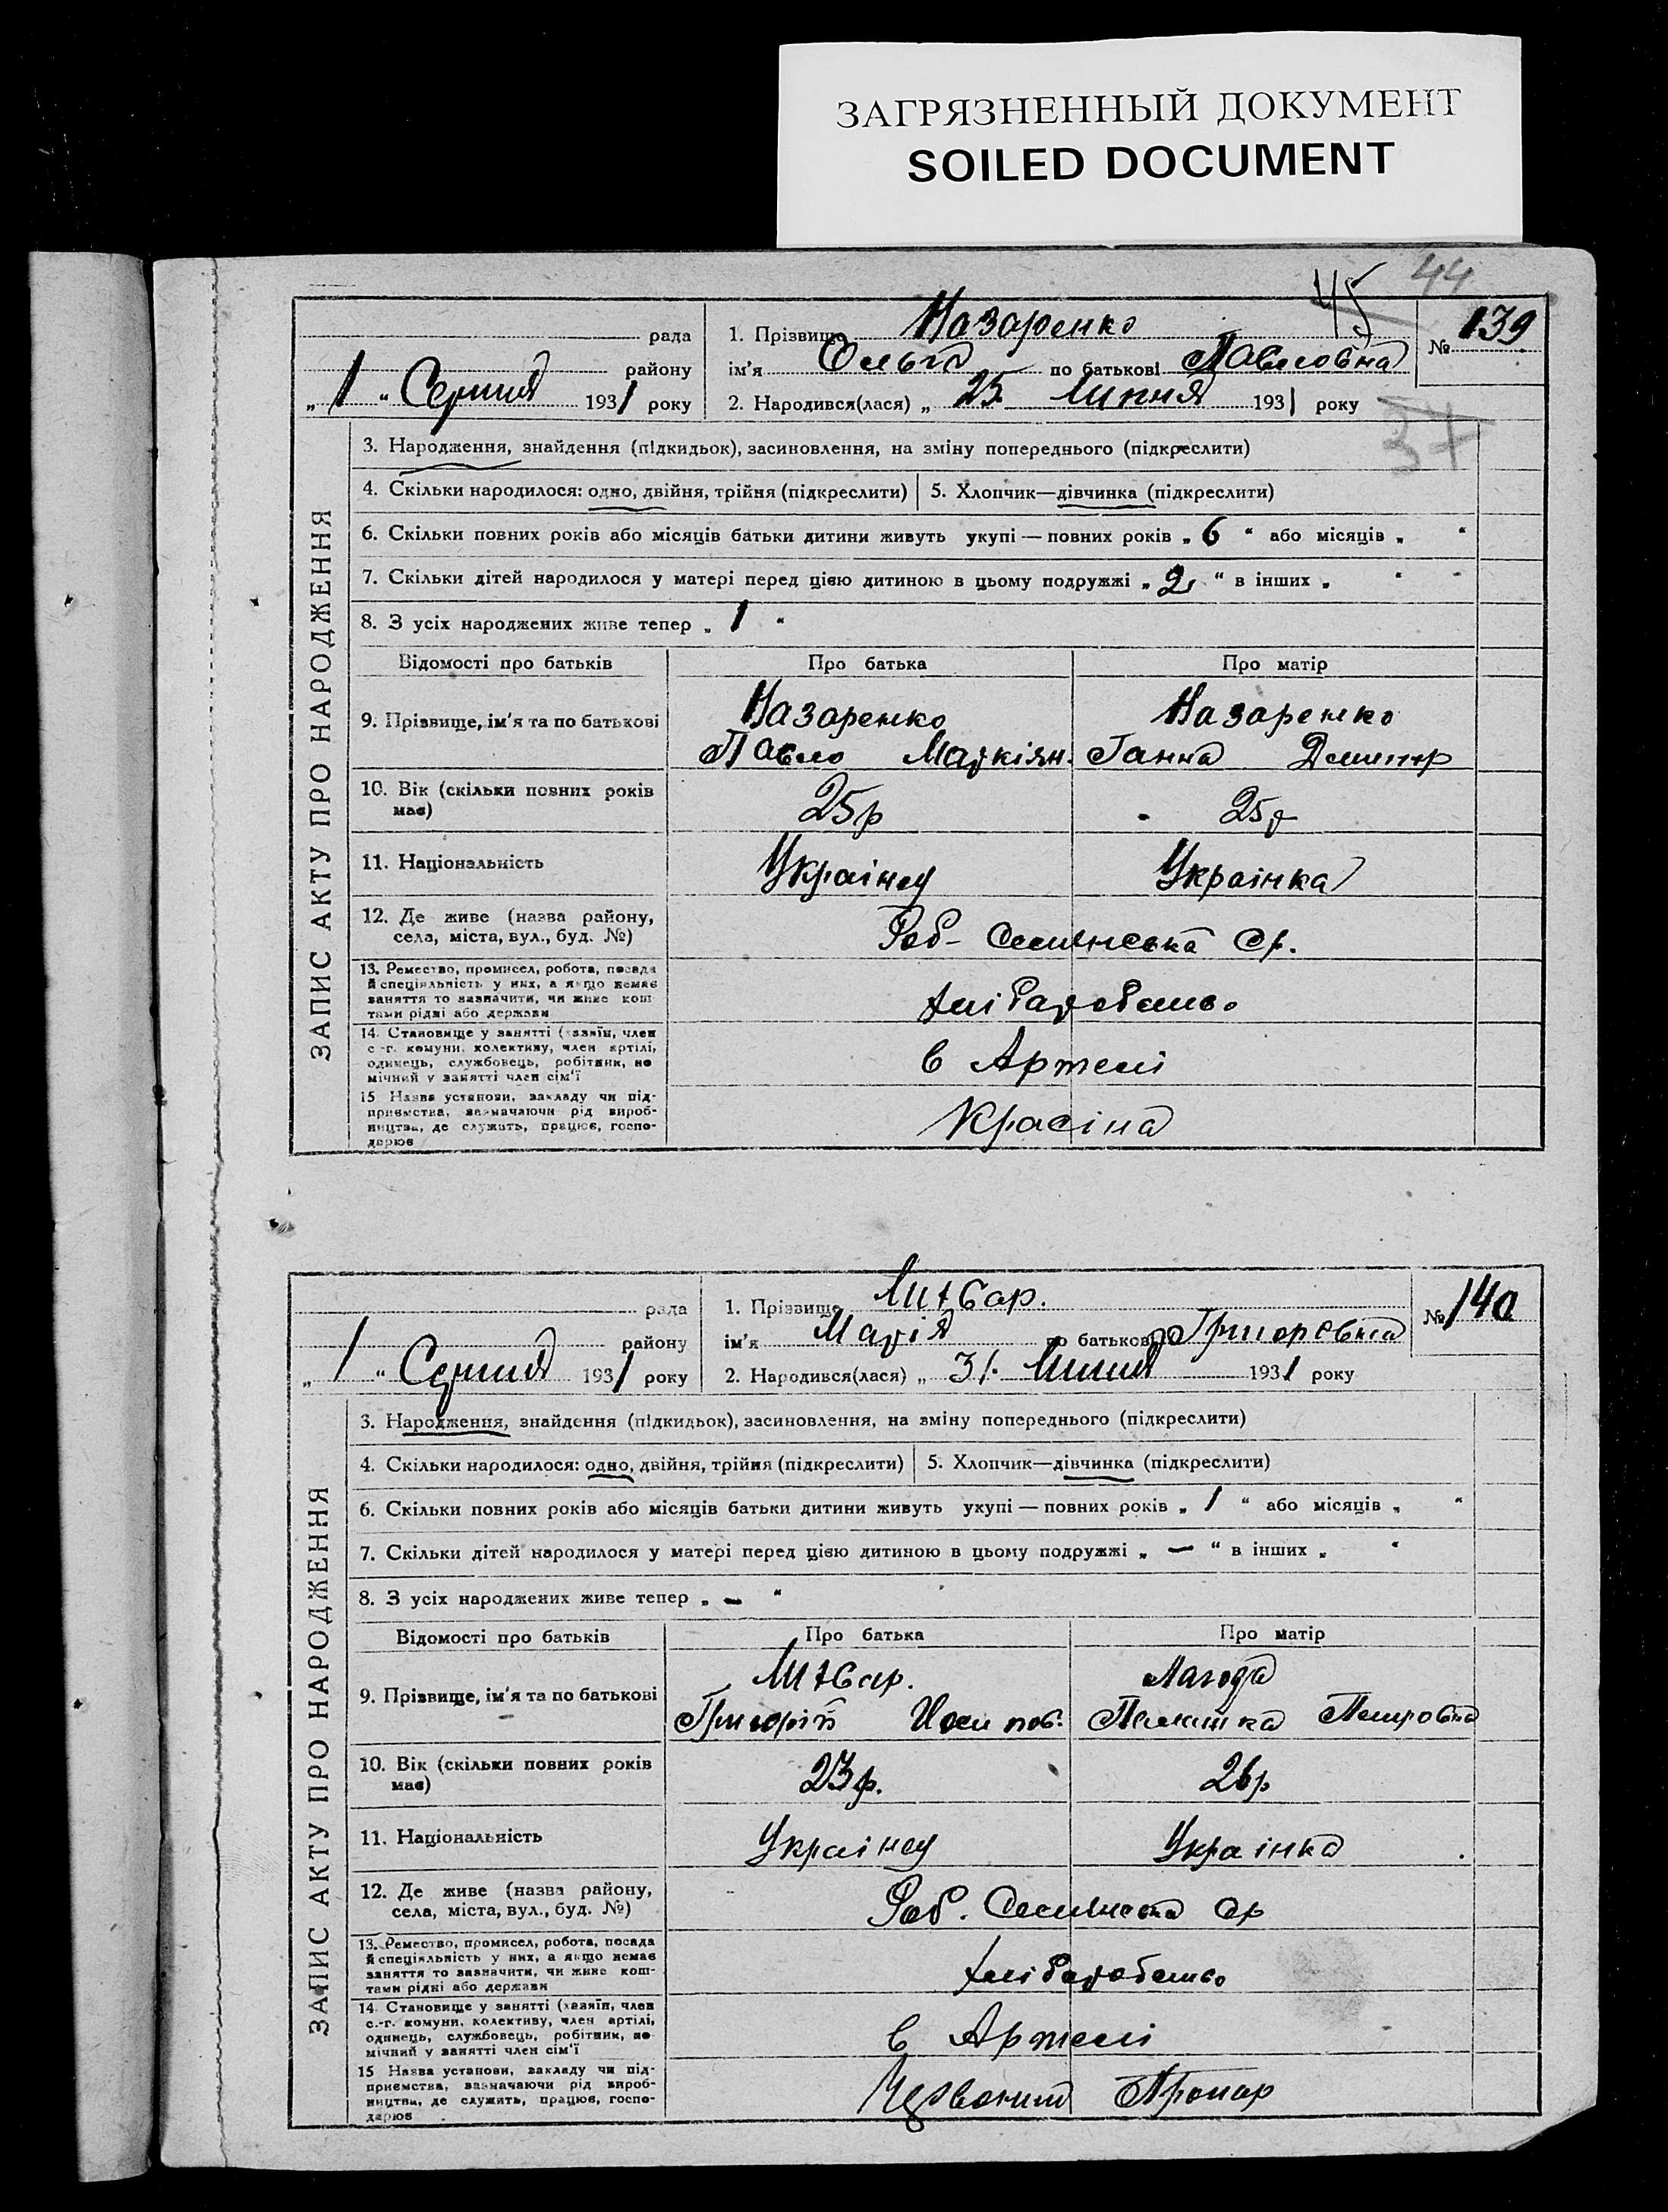 ЗАГРЯЗНЕННЫЙ ДОКУМЕНТ
SOILED DOCUMENT
44
45
рада
району
„ 1 “ Серпня 1931 року
1. Прізвище Назаренко
ім'я Ольга по батькові Павловна
2. Народився(лася) „ 25 липня 1931 року
№ 139
37
ЗАПИС АКТУ ПРО НАРОДЖЕННЯ
3. Народження, знайдення (підкидьок), засиновлення, на зміну попереднього (підкреслити)
4. Скільки народилося: одно, двійня, трійня (підкреслити) 5. Хлопчик—дівчинка (підкреслити)
6. Скільки повних років або місяців батьки дитини живуть укупі — повних років „ 6 “ або місяців „ “
7. Скільки дітей народилося у матері перед цією дитиною в цьому подружжі „ 2 “ в інших „ “
8. З усіх народжених живе тепер „ 1 “
Відомості про батьків Про батька Про матір
9. Прізвище, ім'я та по батькові
Назаренко Назаренко
Павло Маркіян. Ганна Дмитр
10. Вік (скільки повних років
має)
25р 25р
11. Національність
Українец Українка
12. Де живе (назва району,
села, міста, вул., буд. №)
Роб- Селянська ср.
13. Ремество, промисел, робота, посада
й спеціяльність у них, а якщо немає
заняття то зазначити, чи живе кош
тами рідні або держави
хліборобство
14. Становище у занятті (хазяїн, член
с.-г. комуни, колективу, член артілі,
одинець, службовець, робітник, по
мічний у занятті член сім'ї
в Артелі
15 Назва установи, закладу чи під-
приємства, зазначаючи рід вироб-
ництва, де служить, працює, госпо-
дарює
Красіна
рада
району
„ 1 “ Серпня 1931 року
1. Прізвище Митвар.
ім'я Марія по батькові Григорєвна
2. Народився(лася) „ 31. Липня 1931 року
№ 140
ЗАПИС АКТУ ПРО НАРОДЖЕННЯ
3. Народження, знайдення (підкидьок), засиновлення, на зміну попереднього (підкреслити)
4. Скільки народилося: одно, двійня, трійня (підкреслити) 5. Хлопчик—дівчинка (підкреслити)
6. Скільки повних років або місяців батьки дитини живуть укупі — повних років „ 1 “ або місяців „ “
7. Скільки дітей народилося у матері перед цією дитиною в цьому подружжі „ — “ в інших „ “
8. З усіх народжених живе тепер „ — “
Відомості про батьків Про батька Про матір
9. Прізвище, ім'я та по батькові
Митвар. Лагода
Григорій Йосипов. Палашка Петровна
10. Вік (скільки повних років
має)
23р. 26р
11. Національність
Українец Українка
12. Де живе (назва району,
села, міста, вул., буд. №)
Роб. Селянська ср
13. Ремество, промисел, робота, посада
й спеціяльність у них, а якщо немає
заняття то зазначити, чи живе кош-
тами рідні або держави
хліборобство
14. Становище у занятті (хазяїн, член
с.-г. комуни, колективу, член артілі,
одинець, службовець, робітник, по
мічний у занятті член сім'ї
в Артелі
15 Назва установи, закладу чи під-
приємства, зазначаючи рід вироб-
ництва, де служить, працює, госпо-
дарює
Червоний Прапор